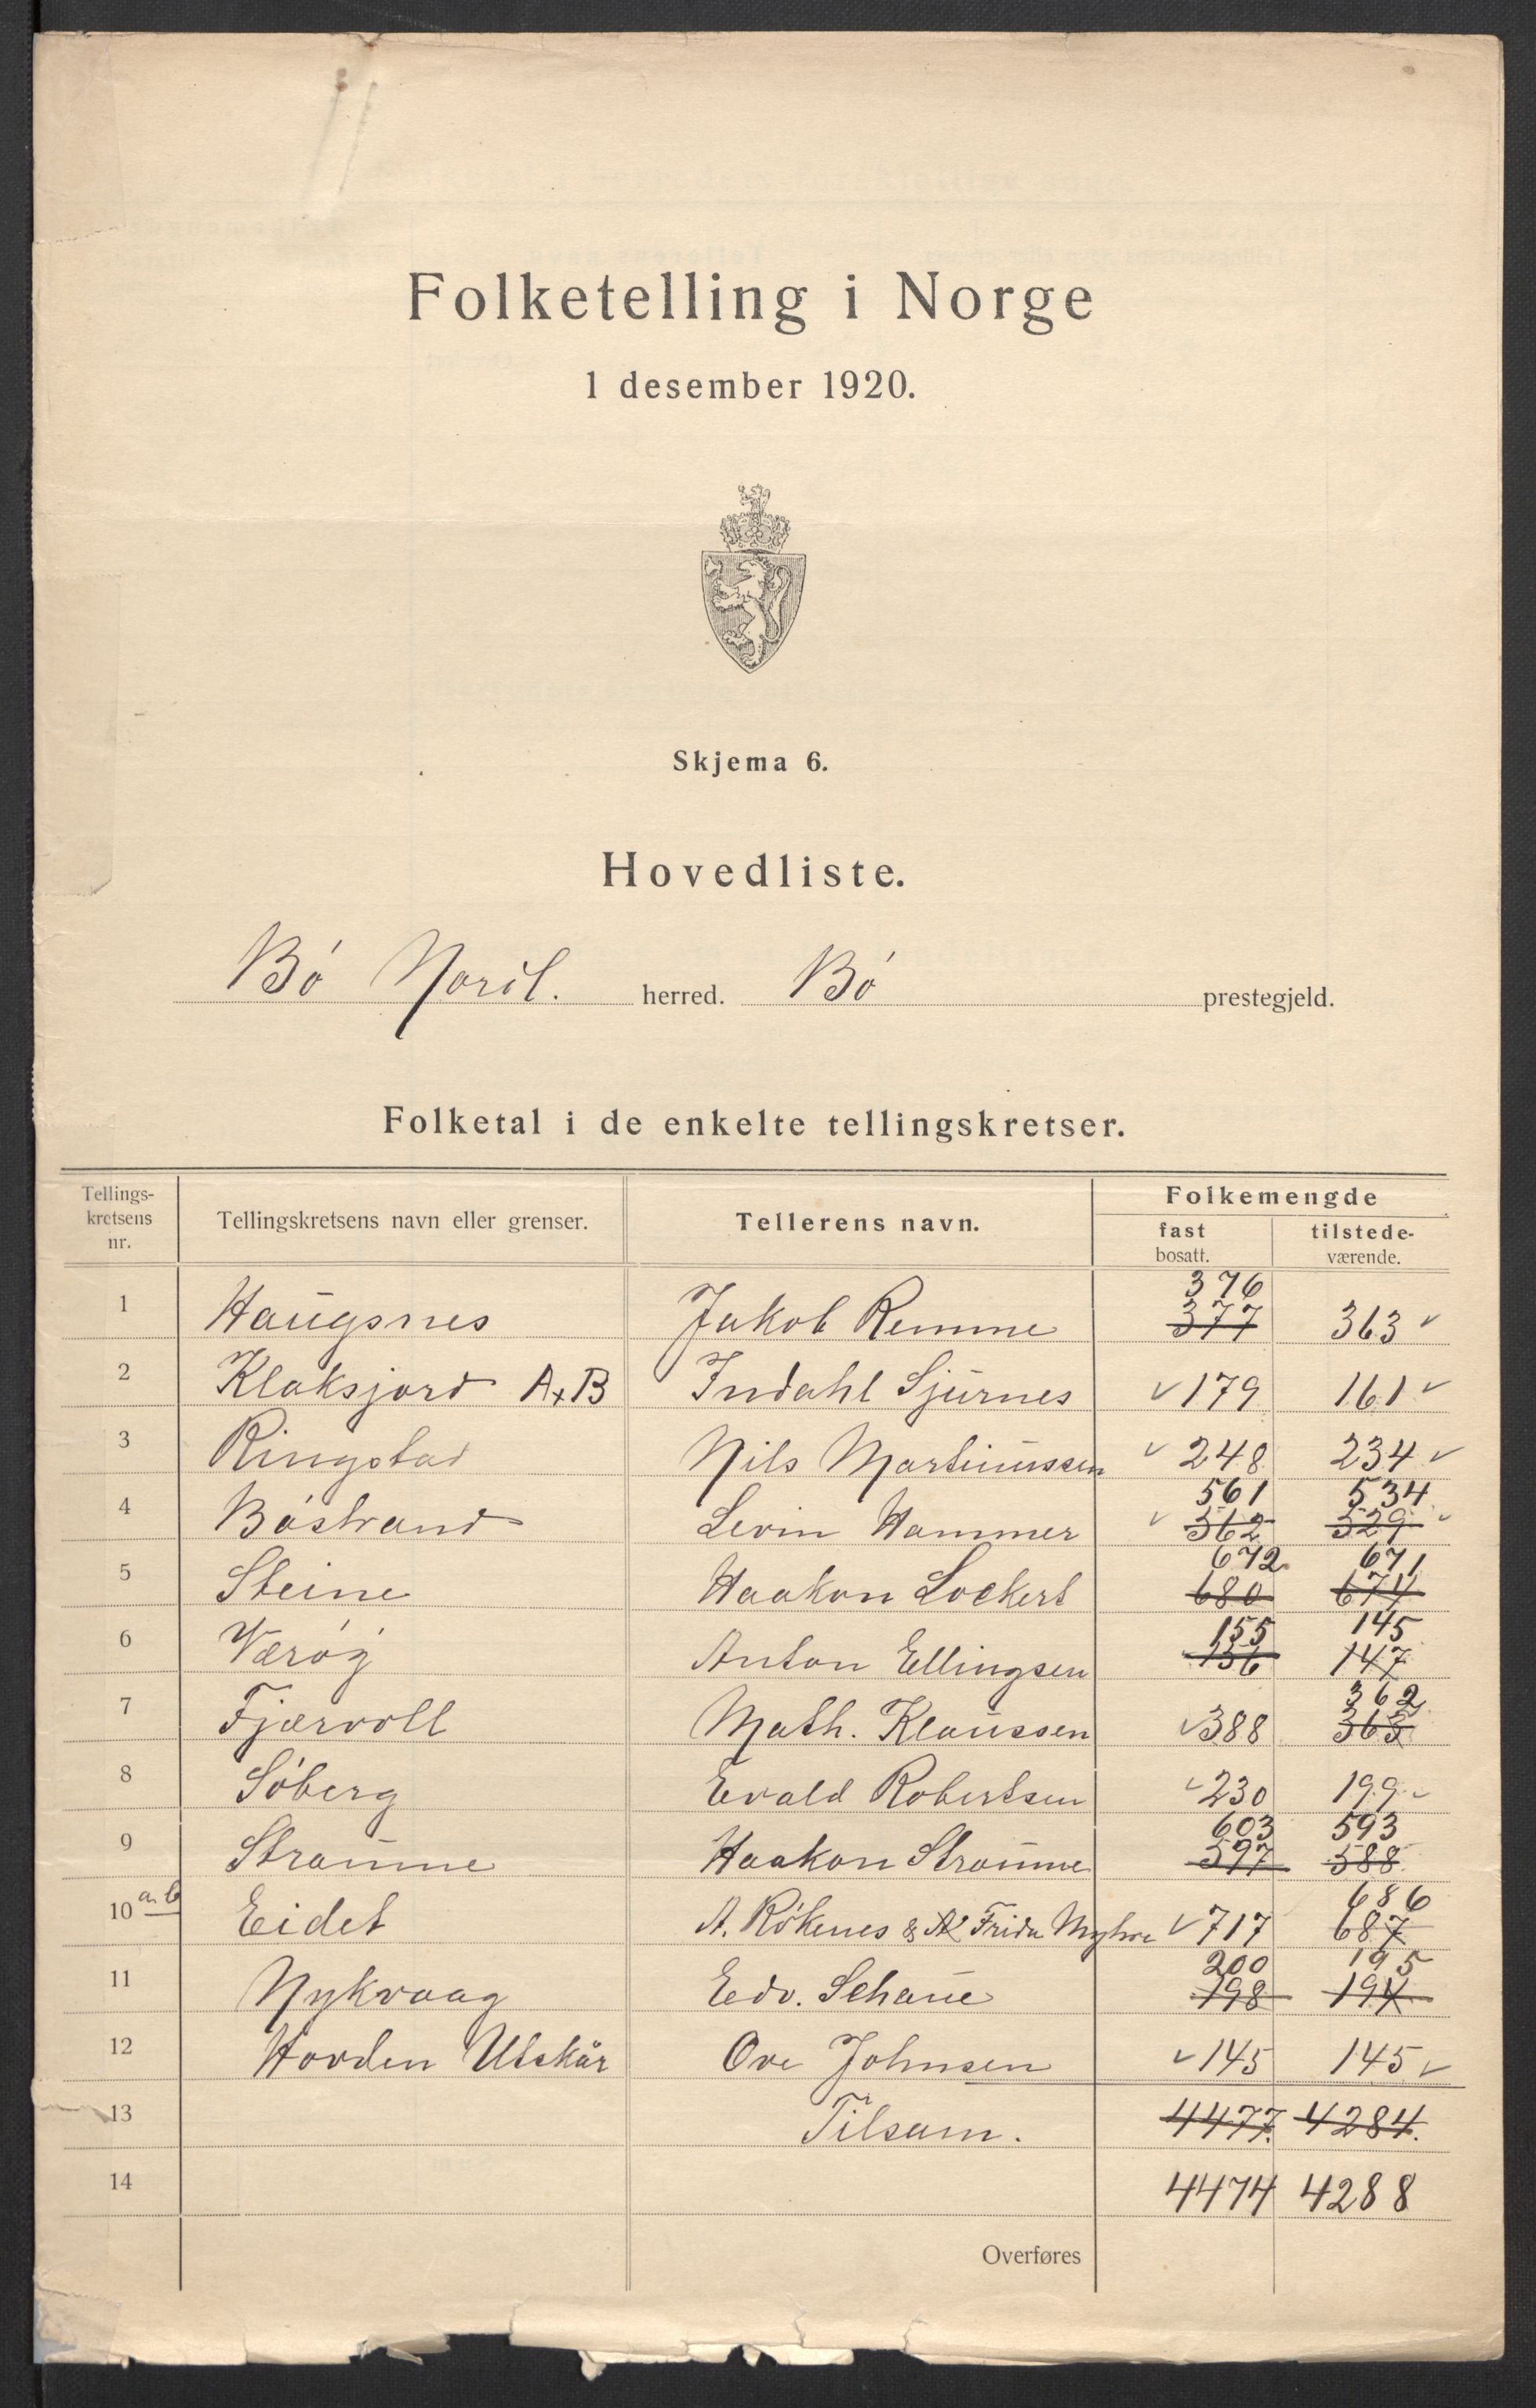 Folketelling i Norge
1 desember 1920.
Skjema 6.
Hovedliste.
Bó Nordl. herred. Bó prestegjeld.
Folketal i de enkelte tellingskretser.
Tellings-kretsens nr. Tellingskretsens navn eller grenser. Tellerens navn. Folkemengde
fast bosatt. tilstede-værende.
376
1 Haugsnes Jakob Remme 377 363 ✓
2 Klaksjord A+B Indahl Sjurnes ✓ 179 161 ✓
3 Ringstad Nils Martinussen ✓ 248 234 ✓
561 534
4 Bóstrand Levin Hammer ✓ 562 529 ✓
672 671
5 Steine Haakon Lockert 680 674
155 145
6 Væróÿ Anton Ellingsen 156 147
362
7 Fjærvoll Math. Klaussen ✓ 388 363
8 Sóberg Evald Robertsen ✓ 230 199 ✓
603 593
9 Straumne Haakon Straumne 597 588
686
10 a.b Eidet A. Rókenes & Frida Myhre ✓ 717 687
200 195
11 Nykvaag Edv. Schaue 198 194
12 Hovden Utskär Ove Johnsen ✓ 145 145 ✓
13 Tilsam. 4477. 4284.
14 4474 4288
Overføres